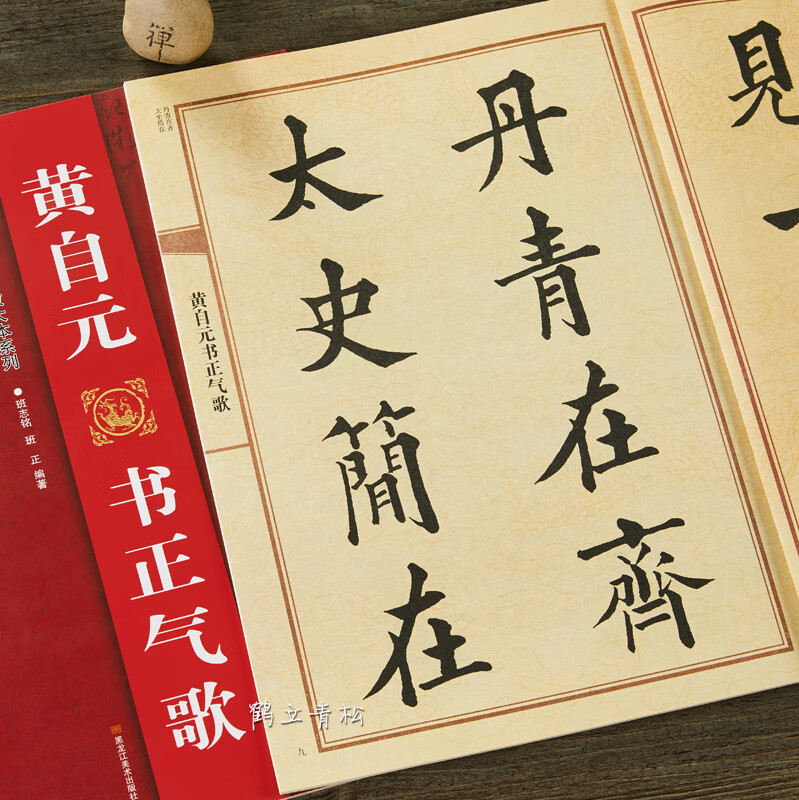 禅
黄自元
书正气歌
大本系列
班志铭 班 正 编著
黑龙江美术出版社
丹青在齐
太史简在
黄自元书正气歌
見
丹青在齊
太史簡在
九
鹤立青松